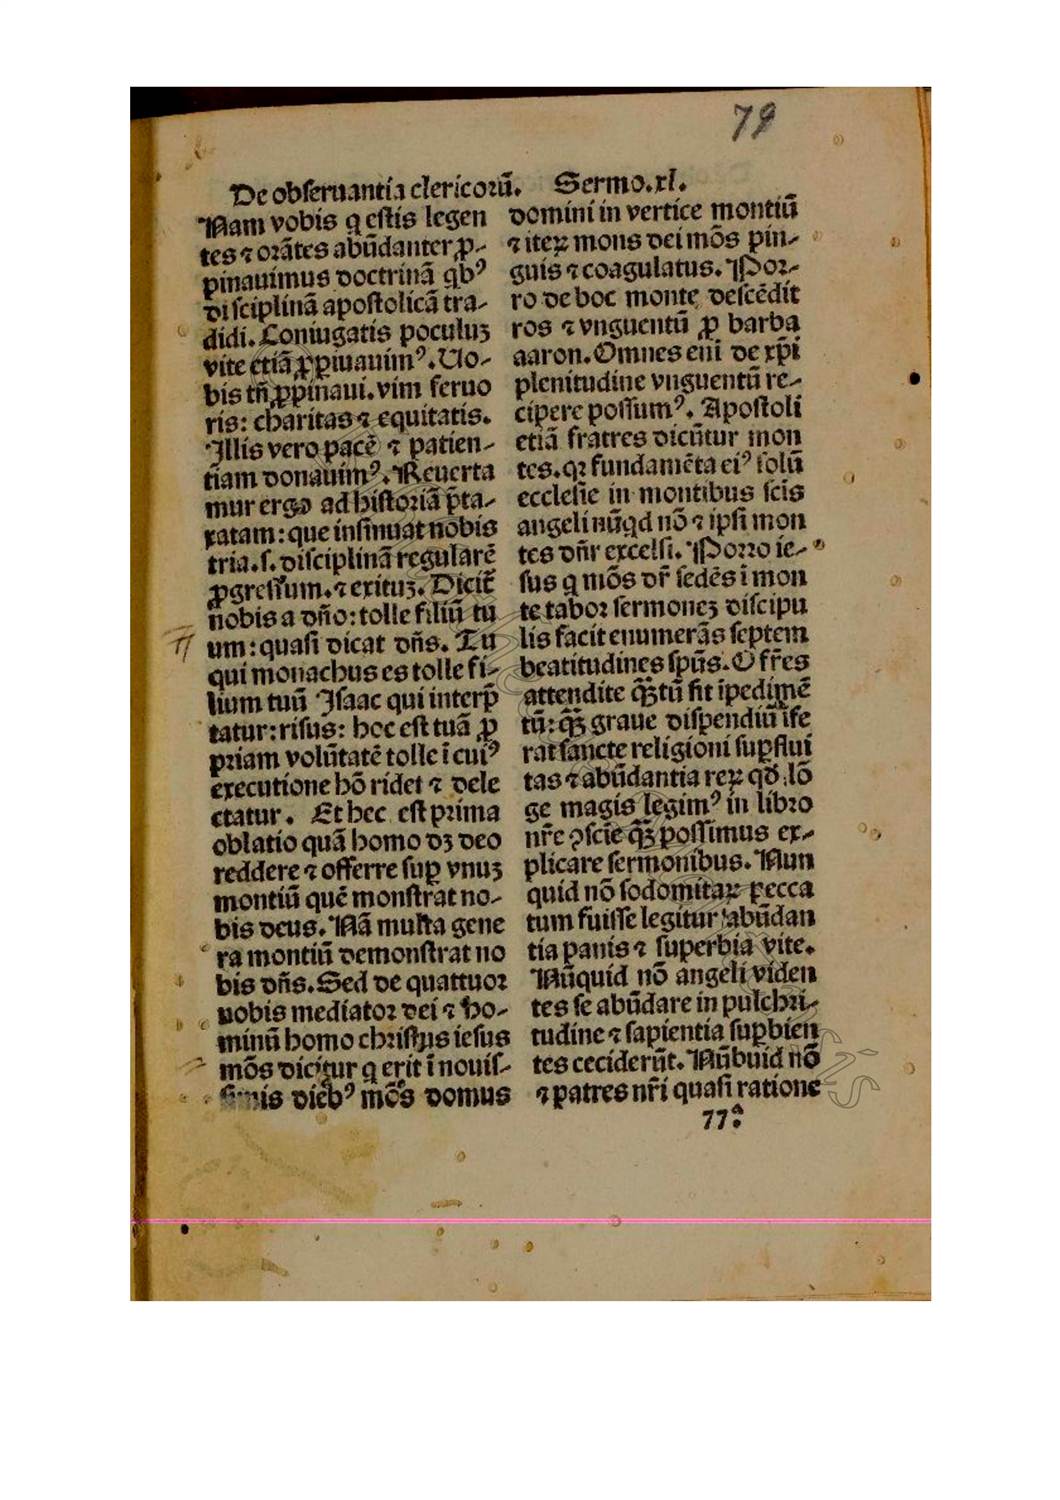 79
De obseruantia clericoꝝ̃. Sermo.xl.
Nam vobis q estis legen
tes ⁊ orãtes abũdanter ꝓ-
pinauimus doctrinã qbꝰ
disciplinã apostolicã tra-
didi. Coniugatis poculuꝫ
vite etiã ꝓpinauimꝰ. Uo-
bis tñ ꝓpinaui. vim feruo
ris: charitas ⁊ equitatis.
Illis vero pacẽ ⁊ patien-
tiam donauimꝰ. Reuerta
mur ergo ad historiã p̃ta-
xatam: que insinuat nobis
tria. s. disciplinã regularẽ
ꝓgressum. ⁊ exituꝫ. Dicit̃
nobis a dño: tolle filiũ tu
um: quasi dicat dñs. Tu
qui monachus es tolle fi-
lium tuũ Isaac qui interp̃
tatur: risus: hoc est tuã ꝓ
priam volũtatẽ tolle ĩ cuiꝰ
executione hõ ridet ⁊ dele
ctatur. Et hec est prima
oblatio quã homo dꝫ deo
reddere ⁊ offerre suꝑ vnuꝫ
montiũ quẽ monstrat no-
bis deus. Nã multa gene
ra montiũ demonstrat no
bis dñs. Sed de quattuor
nobis mediator dei ⁊ ho-
minũ homo christus iesus
mõs dicitur q erit ĩ nouis-
simis diebꝰ mõs domus
domini in vertice montiũ
⁊ iteꝝ mons dei mõs pin-
guis ⁊ coagulatus. Por-
ro de hoc monte descẽdit
ros ⁊ vnguentũ ꝓ barba
aaron. Omnes eni de xp̃i
plenitudine vnguentũ re-
cipere possumꝰ. Apostoli
etiã fratres dicũtur mon
tes. qꝛ fundamẽta eiꝰ solũ
ecclesie in montibus scis
angeli nũqd nõ ⁊ ipsi mon
tes dñr excelsi. Porro ie-
sus q mõs dr̃ sedẽs ĩ mon
te tabor sermoneꝫ discipu
lis facit enumerãs septem
beatitudines sp̃us. O fr̃es
attendite q̃ꝫtũ sit ĩpedimẽ
tũ: q̃ꝫ graue dispendiũ ĩfe
rat sancte religioni suꝑflui
tas ⁊ abũdantia reꝝ qđ lõ
ge magis legimꝰ in libro
nr̃e ꝯscĩe q̃ꝫ possimus ex-
plicare sermonibus. Nun
quid nõ sodomitaꝝ pecca
tum fuisse legitur abũdan
tia panis ⁊ superbia vite.
Nũquid nõ angeli viden
tes se abũdare in pulchri-
tudine ⁊ sapientia suꝑbien
tes ceciderũt. Nũbuid nõ
⁊ patres nr̃i quasi ratione